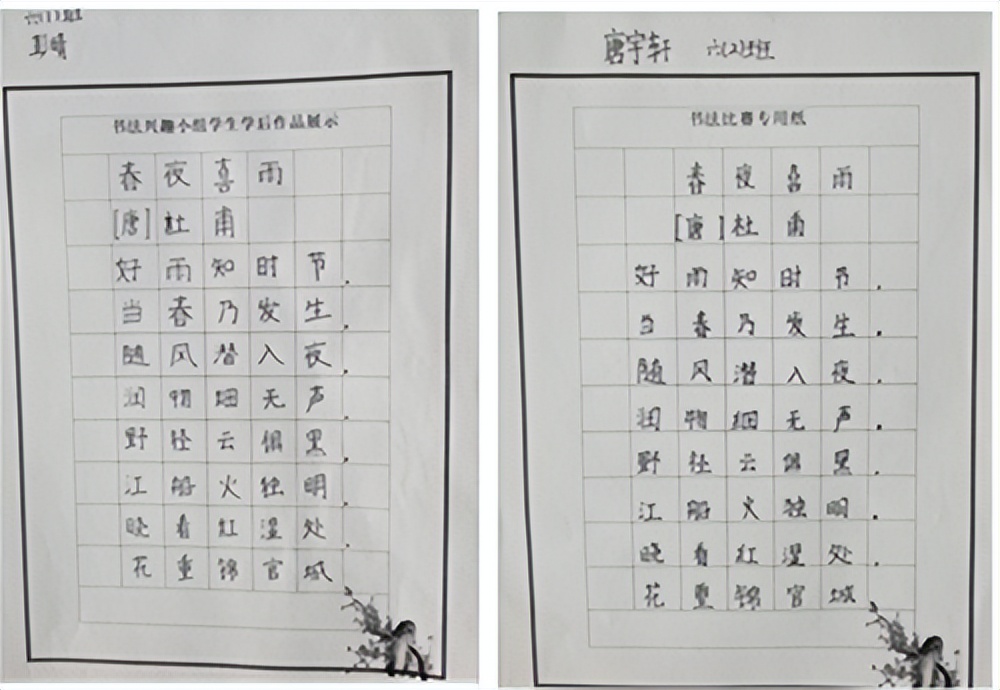 书法兴趣小组学生学后作品展示
春夜喜雨
[唐]杜甫
好雨知时节.
当春乃发生.
随风潜入夜.
润物细无声.
野径云俱黑.
江船火独明.
晓看红湿处.
花重锦官城
唐宇轩 六(2)班
书法比赛专用纸
春夜喜雨
[唐]杜甫
好雨知时节.
当春乃发生.
随风潜入夜.
润物细无声.
野径云俱黑.
江船火独明.
晓看红湿处.
花重锦官城